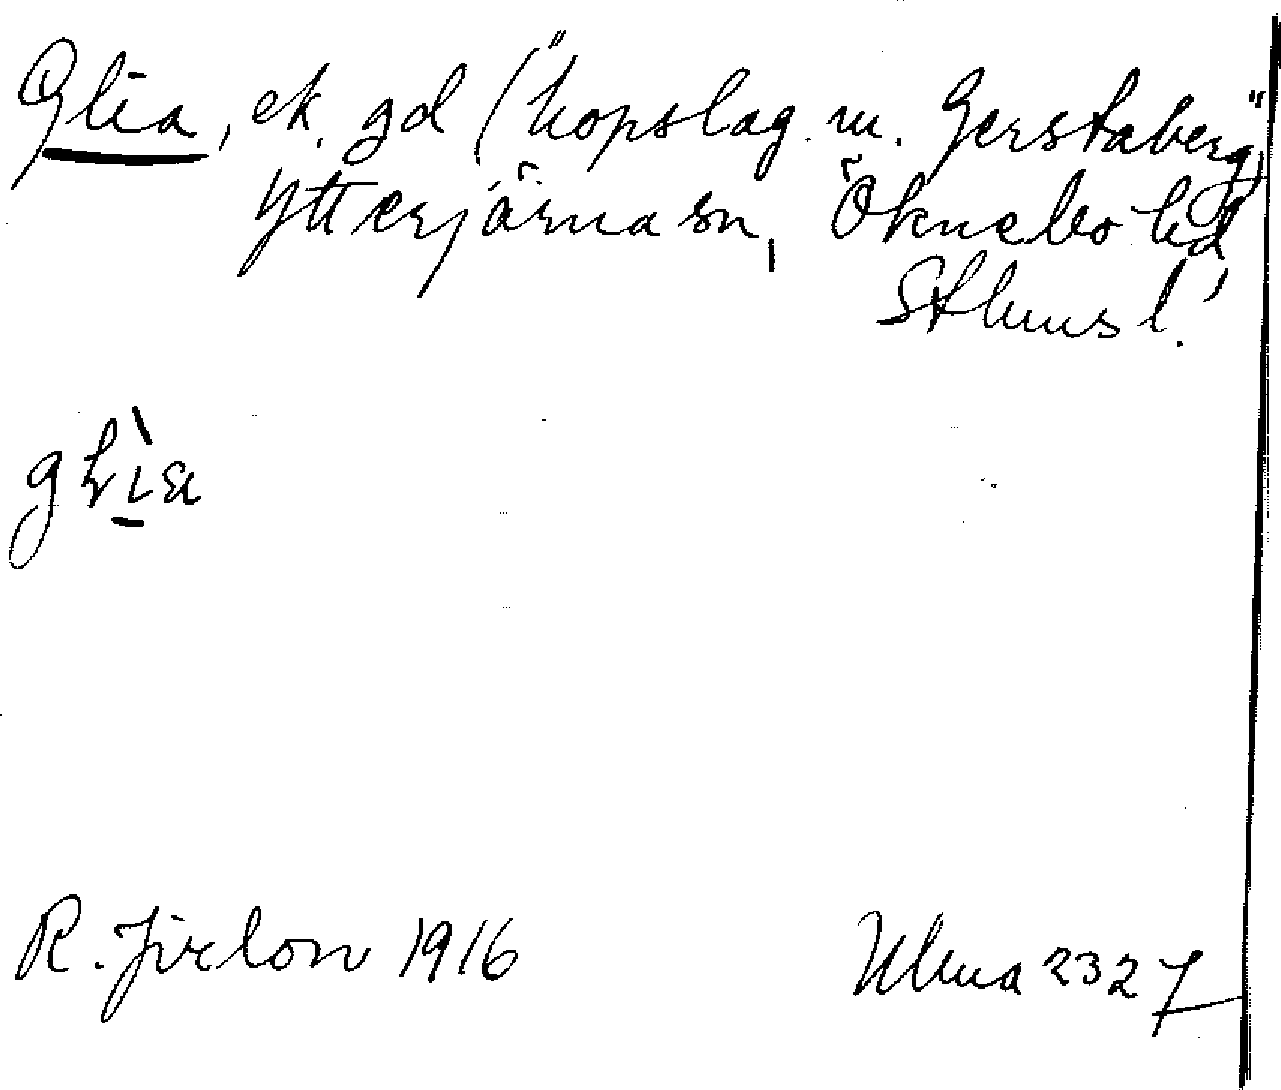 Glia, ek. gd ("hopslag. m. Gerstaberg")
Ytterjärna sn, Öknebo hd,
Sthms l.
R. Jirlow 1916
Ulma 2327